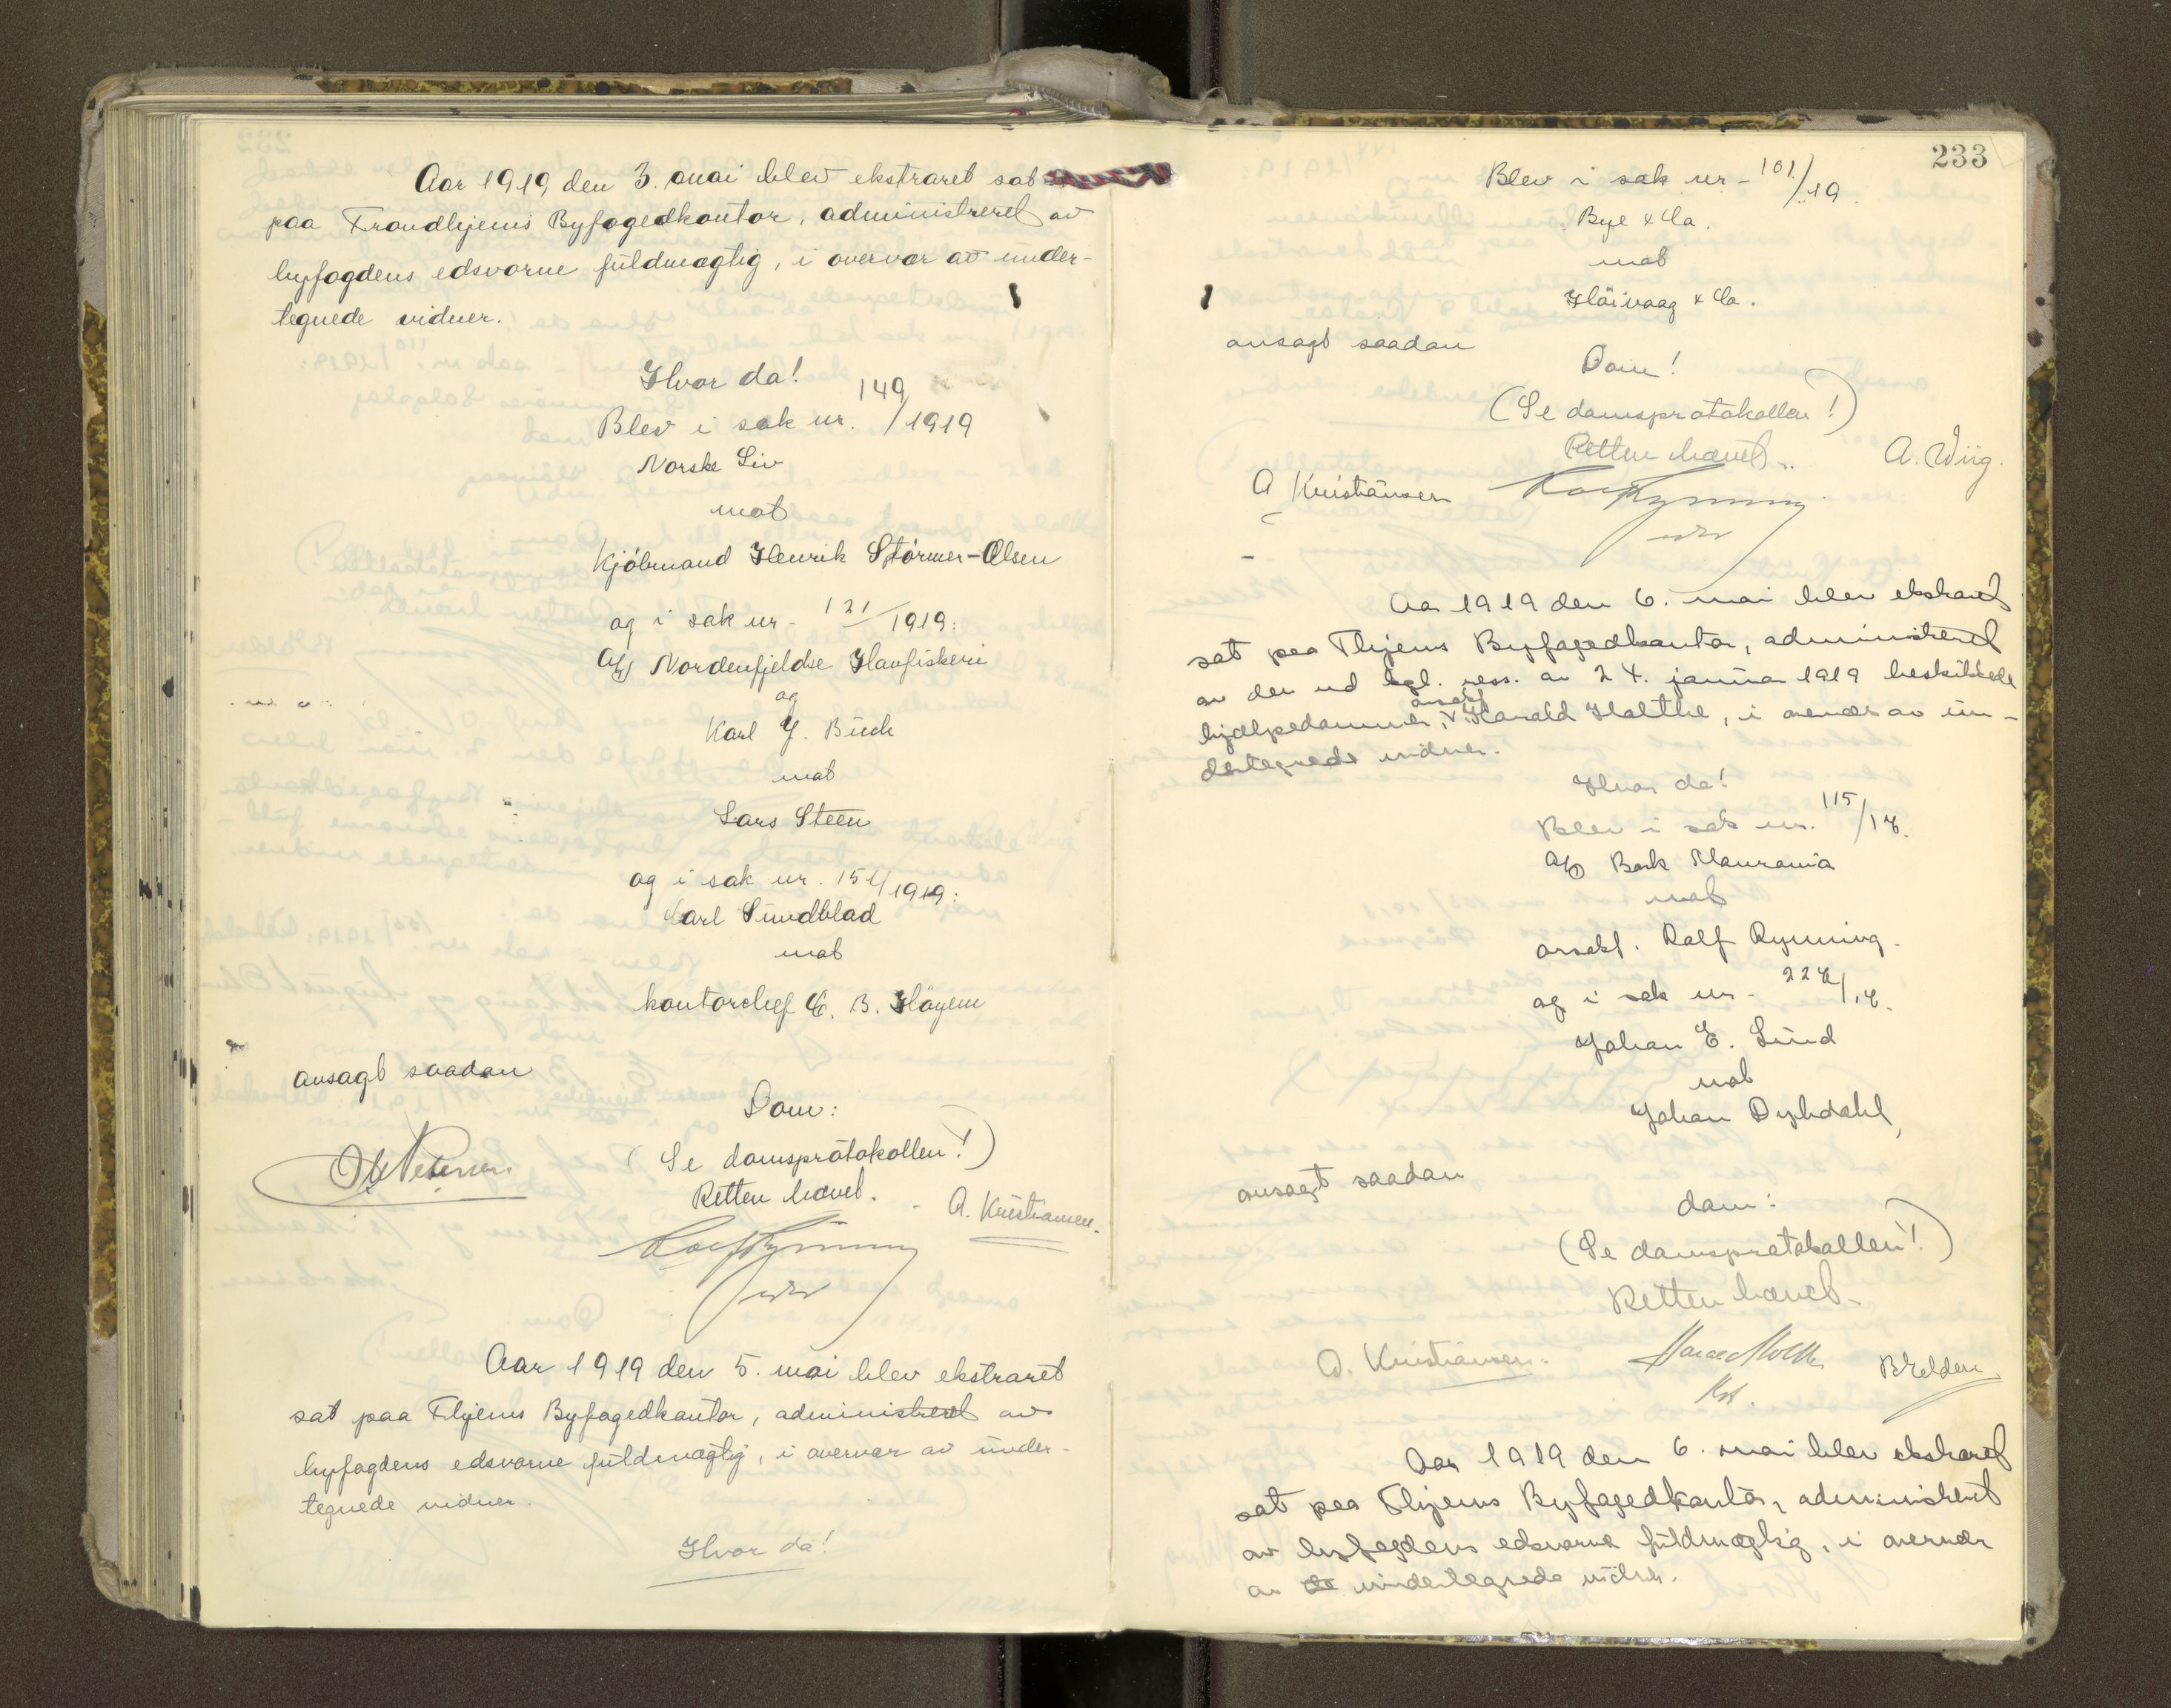 Aar 1919 den 3. mai blev ekstraret sat
paa Trondhjems Byfogedkontor, administreret av
byfogdens edsvorne fuldmægtig, i overvær av under-
tegnede vidner.
Hvor da!
Blev i sak nr. 149/1919
Norske Liv
mot
Kjøbmand Henrik Størmer-Olsen
og i sak nr. 121/1919:
A/S Nordenfjeldske Havfiskeri
og
Karl J. Buch
mot
Lars Steen
og i sak nr. 151/1919:
Carl Sundblad
mot
kontorchef C. B. Høyem
avsagt saadan
Dom:
(Se domsprotokollen!)
Retten hævet.
A. Kristiansen.
Aar 1919 den 5. mai blev ekstraret
sat paa Thjems Byfogedkontor, administreret av
byfogdens edsvorne fuldmægtig, i overvær av under-
tegnede vidner.
Hvor da!
233
Blev i sak nr. 101/19.
Bye & Co.
mot
Høivaag & Co.
avsagt saadan
Dom!
(Se domsprotokollen!)
Retten hævet.
A. Wiig.
A Kristiansen
Aar 1919 den 6. mai blev ekstraret
sat paa Thjems Byfogedkontor, administreret
av den ved kgl. ress. av 24. januar 1919 beskikkede
hjælpedommer, Harald Holthe, i overvær av un-
dertegnede vidner.
Hvor da!
Blev i sak nr. 115/18.
A/S Bark Maurania
mot
orsakf. Rolf Rynning.
og i sak nr. 228/18.
Johan E. Lund
mot
Johan Dyhdahl,
avsagt saadan
dom:
(Se domsprotokollen!)
Retten hævet.
A. Kristiansen.
Aar 1919 den 6. mai blev ekstraret
sat paa Thjems Byfogedkontor, administreret
av byfogdens edsvorne fuldmægtig, i overvær
av de undertegnede vidner.